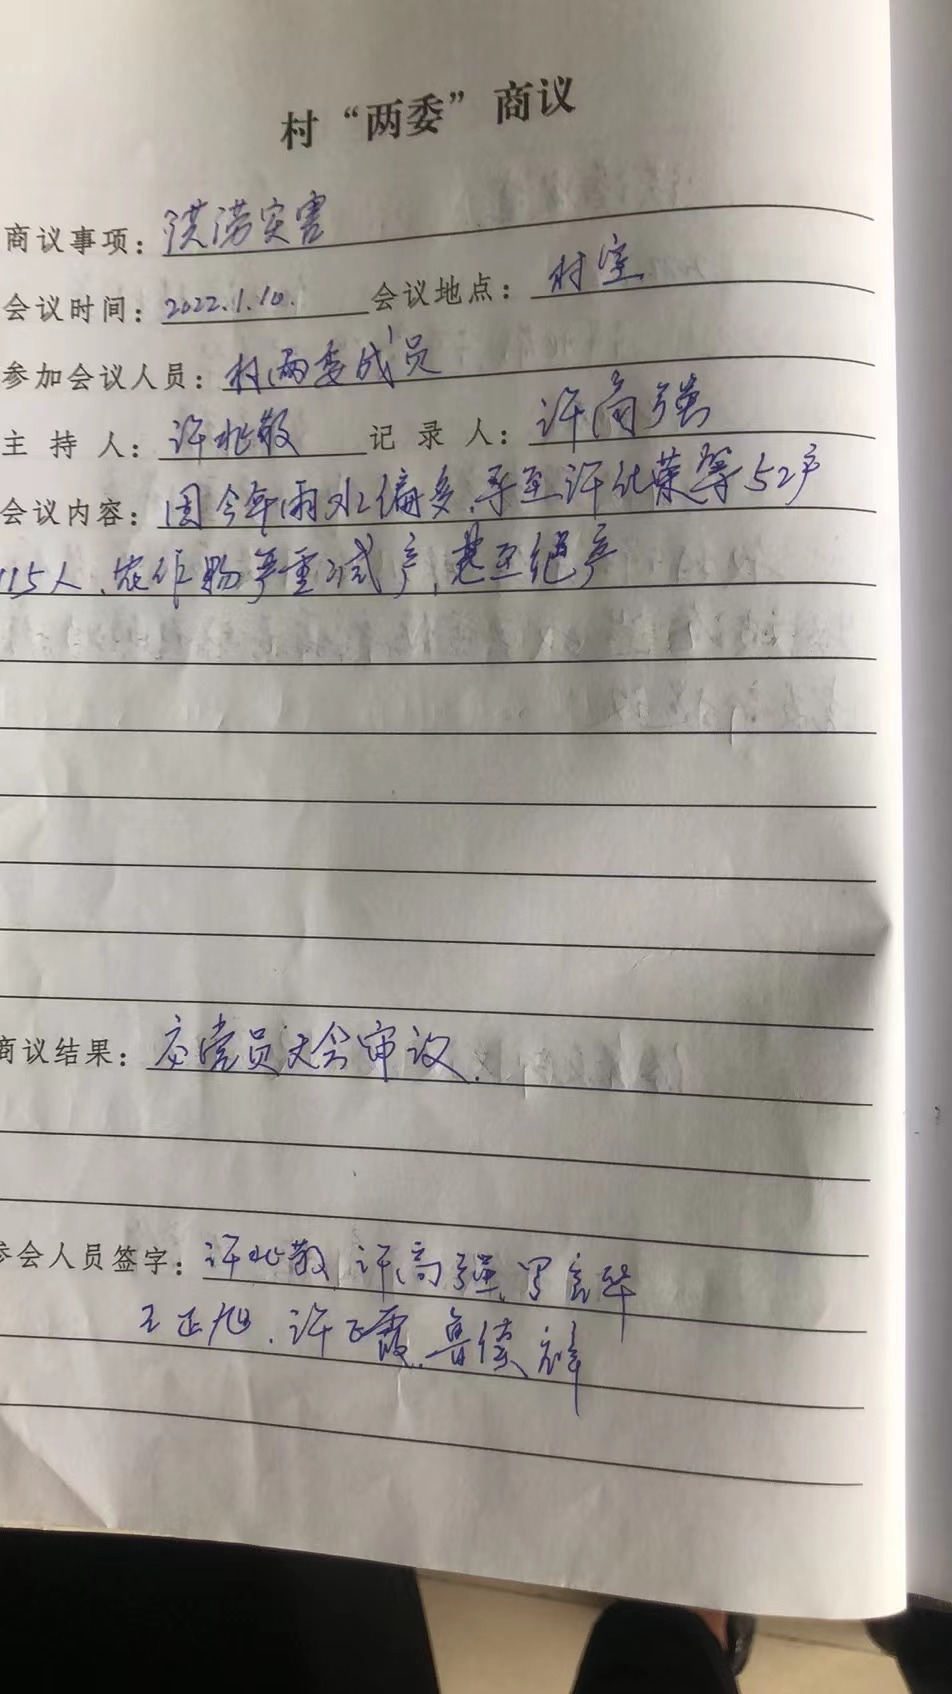 村“两委”商议
商议事项：洪涝灾害
会议时间：2022.1.10. 会议地点：村室
参加会议人员：村两委成员
主持人：许兆敬 记录人：许高强
会议内容：因今年雨水偏多、导至许化荣等52户
115人、农作物严重减产，甚至绝产
商议结果：交党员大会审议.
参会人员签字：许兆敬 许高强、罗
王正旭、许正霞、鲁